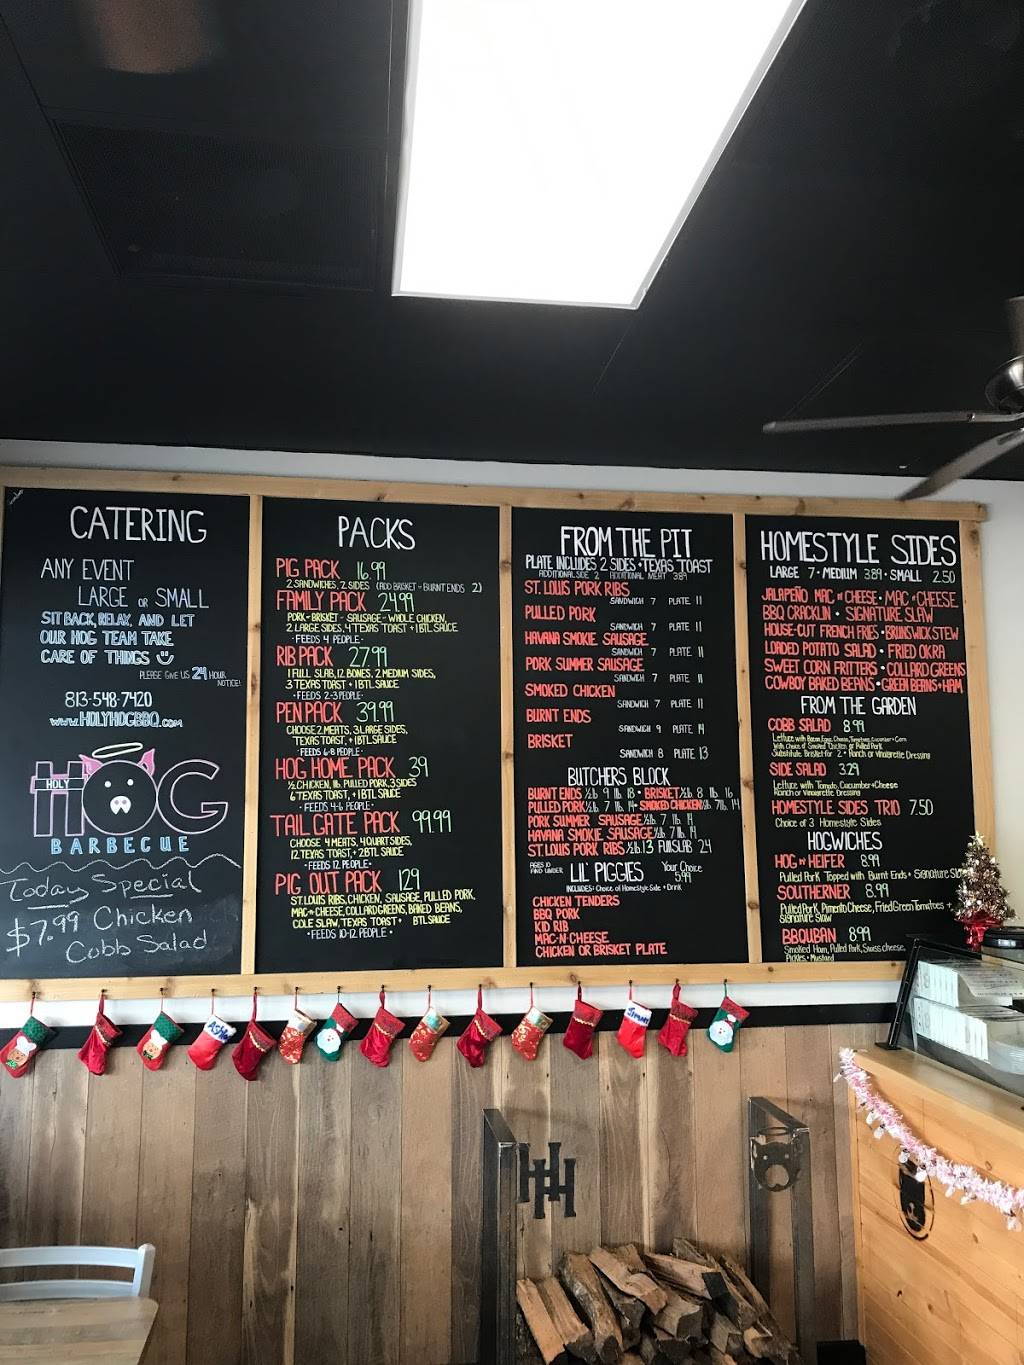 CATERING
ANY EVENT
LARGE OR SMALL
SIT BACK, RELAX, AND LET
OUR HOG TEAM TAKE
CARE OF THINGS
PLEASE GIVE US 24 HOUR
NOTICE!
813-548-7420
WWW.HOLYHOGBBQ.COM
HOLY
HOG
BARBECUE
Today Special
$7.99 Chicken
Cobb Salad
PACKS
PIG PACK 16.99
2 SANDWICHES, 2 SIDES (ADD BRISKET or BURNT ENDS 2)
FAMILY PACK 24.99
PORK - BRISKET - SAUSAGE - WHOLE CHICKEN,
2 LARGE SIDES, 4 TEXAS TOAST + 1 BTL SAUCE
• FEEDS 4 PEOPLE •
RIB PACK 27.99
1 FULL SLAB, 12 BONES, 2 MEDIUM SIDES,
3 TEXAS TOAST + 1 BTL SAUCE
• FEEDS 2-3 PEOPLE •
PEN PACK 39.99
CHOOSE 2 MEATS, 3 LARGE SIDES,
TEXAS TOAST, + 1 BTL SAUCE
• FEEDS 6-8 PEOPLE •
HOG HOME PACK 39
½ CHICKEN, 1 lb. PULLED PORK, 3 SIDES
6 TEXAS TOAST + 1 BTL SAUCE
• FEEDS 4-6 PEOPLE •
TAIL GATE PACK 99.99
CHOOSE 4 MEATS, 4 QUART SIDES,
12 TEXAS TOAST, + 2 BTL SAUCE
• FEEDS 12 PEOPLE •
PIG OUT PACK 129
ST. LOUIS RIBS, CHICKEN, SAUSAGE, PULLED PORK,
MAC n CHEESE, COLLARD GREENS, BAKED BEANS,
COLE SLAW, TEXAS TOAST + BTL SAUCE
• FEEDS 10-12 PEOPLE •
FROM THE PIT
PLATE INCLUDES 2 SIDES + TEXAS TOAST
ADDITIONAL SIDE 2 ADDITIONAL MEAT 3.89
ST. LOUIS PORK RIBS
SANDWICH 7 PLATE 11
PULLED PORK
SANDWICH 7 PLATE 11
HAVANA SMOKIE SAUSAGE
SANDWICH 7 PLATE 11
PORK SUMMER SAUSAGE
SANDWICH 7 PLATE 11
SMOKED CHICKEN
SANDWICH 7 PLATE 11
BURNT ENDS
SANDWICH 9 PLATE 14
BRISKET
SANDWICH 8 PLATE 13
BUTCHERS BLOCK
BURNT ENDS ½ lb 9 lb 18 • BRISKET ½ lb 8 lb 16
PULLED PORK ½ lb 7 lb 14 • SMOKED CHICKEN ½ lb 7 lb 14
PORK SUMMER SAUSAGE ½ lb 7 lb 14
HAVANA SMOKIE SAUSAGE ½ lb 7 lb 14
ST. LOUIS PORK RIBS ½ lb 13 FULL SLAB 24
AGES 10 AND UNDER LIL' PIGGIES Your Choice 5.99
INCLUDES: Choice of Homestyle Side + Drink
CHICKEN TENDERS
BBQ PORK
KID RIB
MAC-N-CHEESE
CHICKEN OR BRISKET PLATE
HOMESTYLE SIDES
LARGE 7 • MEDIUM 3.89 • SMALL 2.50
JALAPEÑO MAC n CHEESE • MAC n CHEESE
BBQ CRACKLIN • SIGNATURE SLAW
HOUSE-CUT FRENCH FRIES • BRUNSWICK STEW
LOADED POTATO SALAD • FRIED OKRA
SWEET CORN FRITTERS • COLLARD GREENS
COWBOY BAKED BEANS • GREEN BEANS + HAM
FROM THE GARDEN
COBB SALAD 8.99
Lettuce with Bacon, Eggs, Cheese, Tomatoes, Cucumber + Corn
With Choice of Smoked Chicken or Pulled Pork
Substitute Brisket for 2 • Ranch or Vinaigrette Dressing
SIDE SALAD 3.29
Lettuce with Tomato, Cucumber + Cheese
Ranch or Vinaigrette Dressing
HOMESTYLE SIDES TRIO 7.50
Choice of 3 Homestyle Sides
HOGWICHES
HOG N' HEIFER 8.99
Pulled Pork Topped with Burnt Ends + Signature Slaw
SOUTHERNER 8.99
Pulled Pork, Pimento Cheese, Fried Green Tomatoes +
Signature Slaw
BBQUBAN 8.99
Smoked Ham, Pulled Pork, Swiss cheese,
Pickles + Mustard